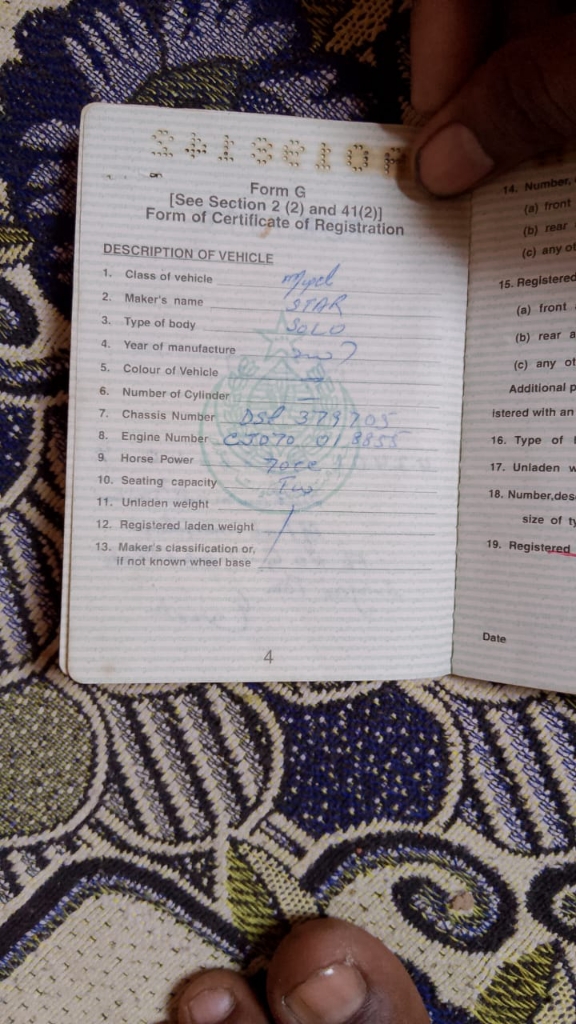 Form G
[See Section 2 (2) and 41(2)]
Form of Certificate of Registration
DESCRIPTION OF VEHICLE
1. Class of vehicle
2. Maker's name STAR
3. Type of body SOLO
4. Year of manufacture
5. Colour of Vehicle
6. Number of Cylinder
7. Chassis Number DSL 379705
8. Engine Number CJ070 013855
9. Horse Power 70cc
10. Seating capacity Two
11. Unladen weight
12. Registered laden weight
13. Maker's classification or,
if not known wheel base
4
14. Number,
(a) front
(b) rear
(c) any ot
15. Registered
(a) front
(b) rear a
(c) any ot
Additional p
istered with an
16. Type of
17. Unladen w
18. Number,des
size of ty
19. Registered
Date